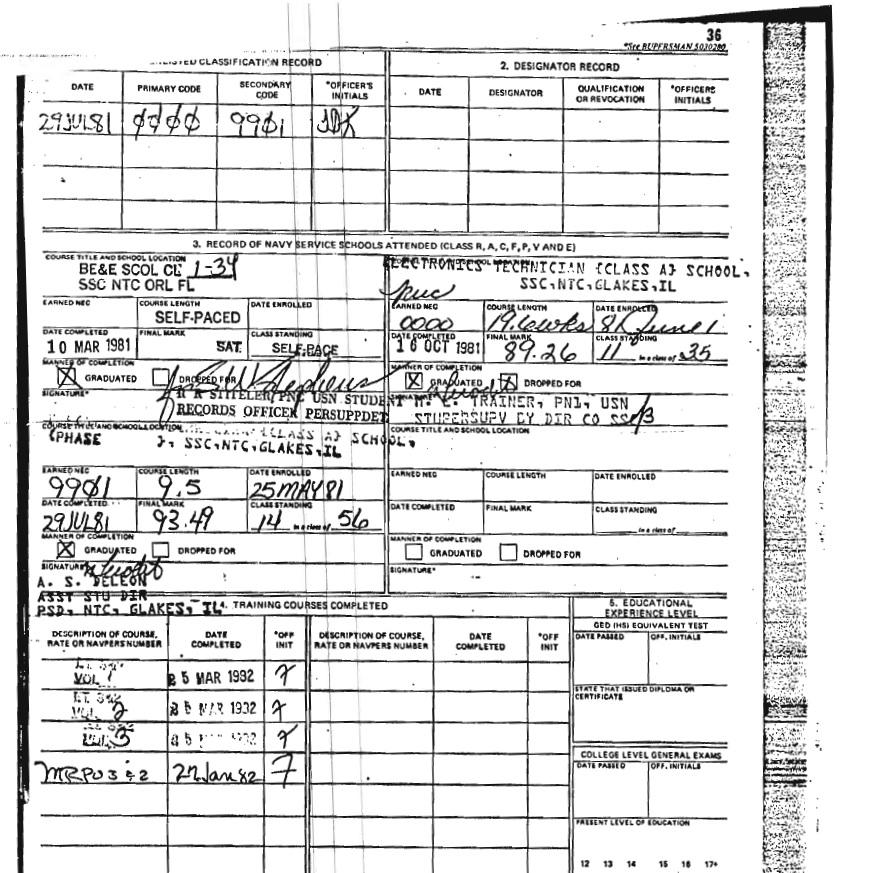 36
*See BUPERSMAN 5030280
CLASSIFICATION RECORD
2. DESIGNATOR RECORD
DATE PRIMARY CODE SECONDARY CODE *OFFICER'S INITIALS
DATE DESIGNATOR QUALIFICATION OR REVOCATION *OFFICERS INITIALS
29JUL81 0000 9901
3. RECORD OF NAVY SERVICE SCHOOLS ATTENDED (CLASS R, A, C, F, P, V AND E)
COURSE TITLE AND SCHOOL LOCATION
BE&E SCOL CL 1-34
SSC NTC ORL FL
EARNED NEC COURSE LENGTH DATE ENROLLED
SELF-PACED
DATE COMPLETED FINAL MARK CLASS STANDING
10 MAR 1981 SAT. SELF-PACE
MANNER OF COMPLETION
GRADUATED DROPPED FOR
SIGNATURE*
PNC USN STUDENT
RECORDS OFFICER PERSUPPDET
ELECTRONICS TECHNICIAN (CLASS A) SCHOOL,
SSC,NTC,GLAKES,IL
EARNED NEC COURSE LENGTH DATE ENROLLED
0000
DATE COMPLETED FINAL MARK CLASS STANDING
16 OCT 1981 89.26 11 in a class of 35
MANNER OF COMPLETION
GRADUATED DROPPED FOR
TRAINER, PN1, USN
STUPERSUPV BY DIR CO
COURSE TITLE AND SCHOOL LOCATION
PHASE (CLASS A) SCHOOL,
SSC,NTC,GLAKES,IL
EARNED NEC COURSE LENGTH DATE ENROLLED
9901 9.5 25MAY81
DATE COMPLETED FINAL MARK CLASS STANDING
29JUL81 93.49 14 in a class of 56
MANNER OF COMPLETION
GRADUATED DROPPED FOR
SIGNATURE*
A. S. DELEON
ASST STU DIR
PSD, NTC, GLAKES, IL
COURSE TITLE AND SCHOOL LOCATION
EARNED NEC COURSE LENGTH DATE ENROLLED
DATE COMPLETED FINAL MARK CLASS STANDING
in a class of
MANNER OF COMPLETION
GRADUATED DROPPED FOR
SIGNATURE*
4. TRAINING COURSES COMPLETED
DESCRIPTION OF COURSE, RATE OR NAVPERS NUMBER DATE COMPLETED *OFF INIT
DESCRIPTION OF COURSE, RATE OR NAVPERS NUMBER DATE COMPLETED *OFF INIT
VOL 1 25 MAR 1982
VOL 2
3
MRPO 3 & 2 27 Jan 82
5. EDUCATIONAL EXPERIENCE LEVEL
GED (HS) EQUIVALENT TEST
DATE PASSED OFF. INITIALS
STATE THAT ISSUED DIPLOMA OR CERTIFICATE
COLLEGE LEVEL GENERAL EXAMS
DATE PASSED OFF. INITIALS
PRESENT LEVEL OF EDUCATION
12 13 14 15 16 17+